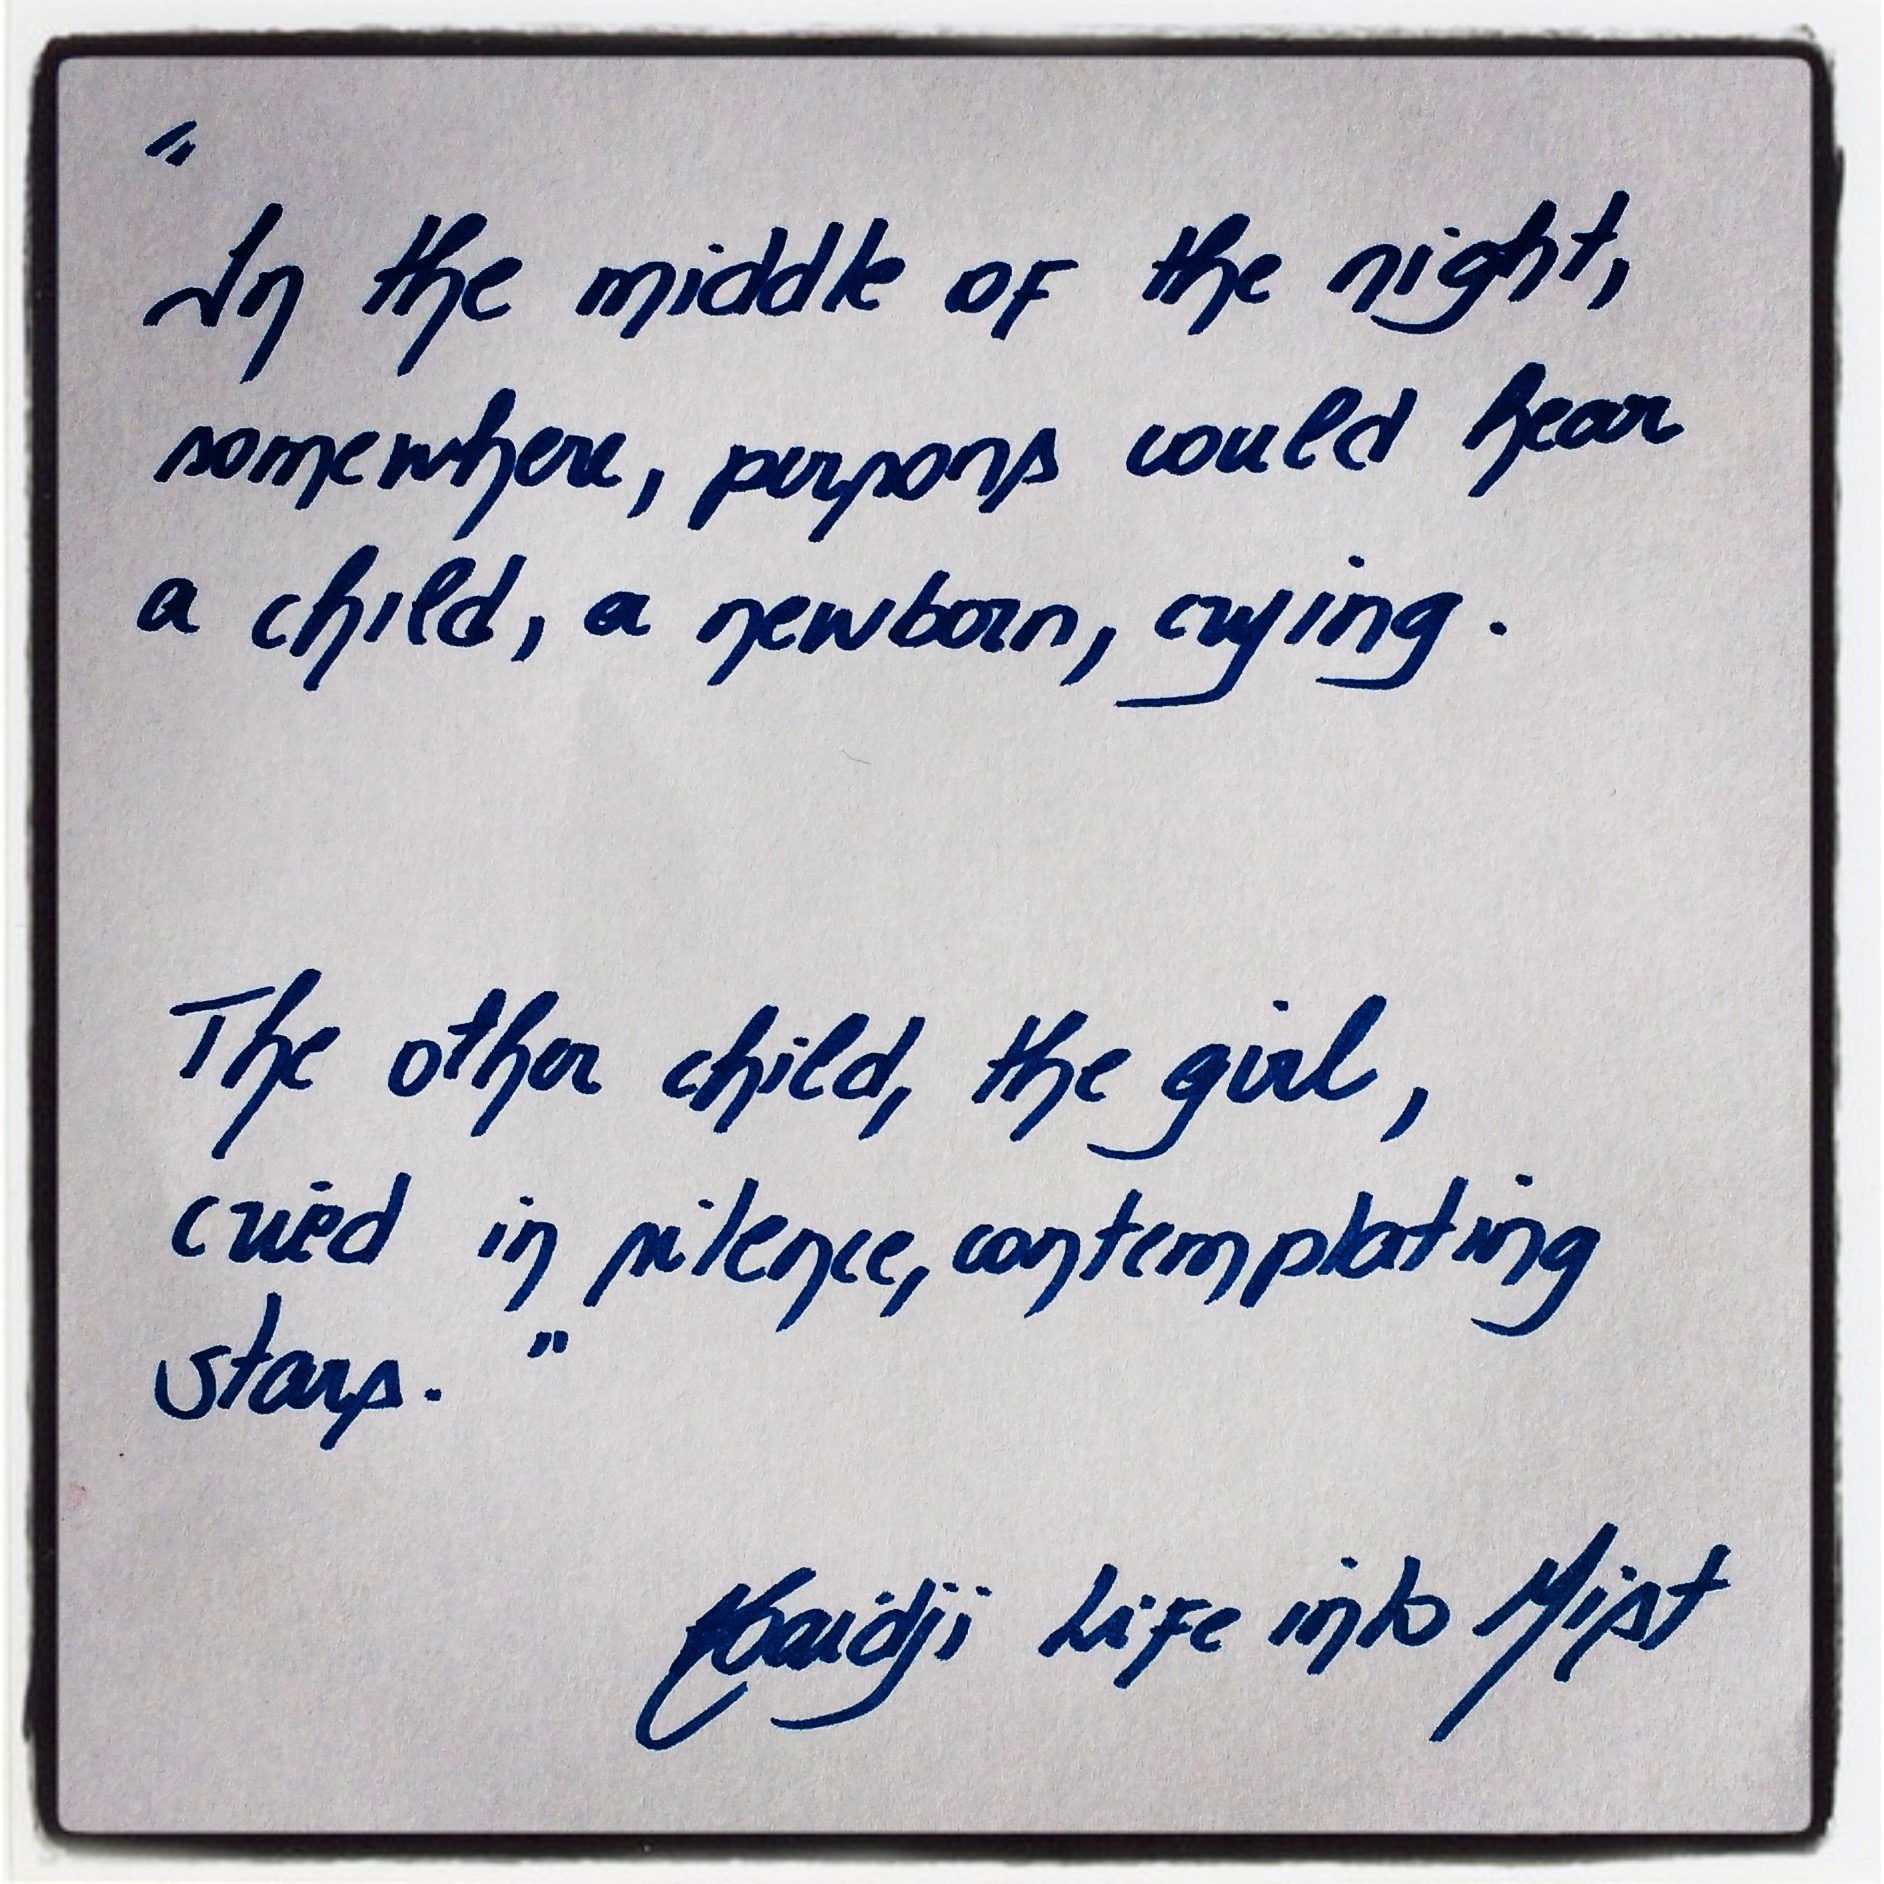 "
In the middle of the night,
somewhere, persons could hear
a child, a newborn, crying.
The other child, the girl,
cried in silence, contemplating
stars. "
Life into Mist